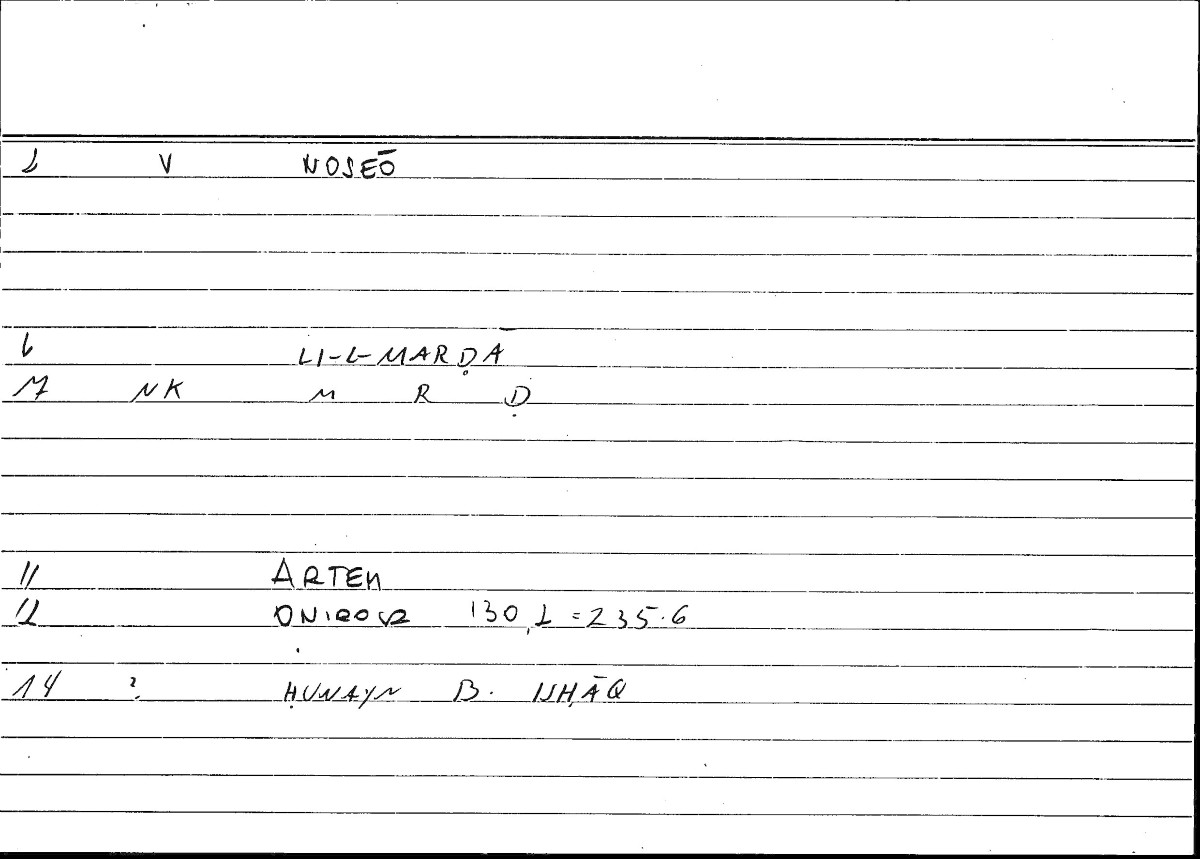 2 V NOSEŌ
6 LI-L-MARḌĀ
7 NK M R Ḍ
11 ARTEM
12 ONIROCR 130,2 = 235.6
14 ? ḤUNAYN B. ISḤĀQ